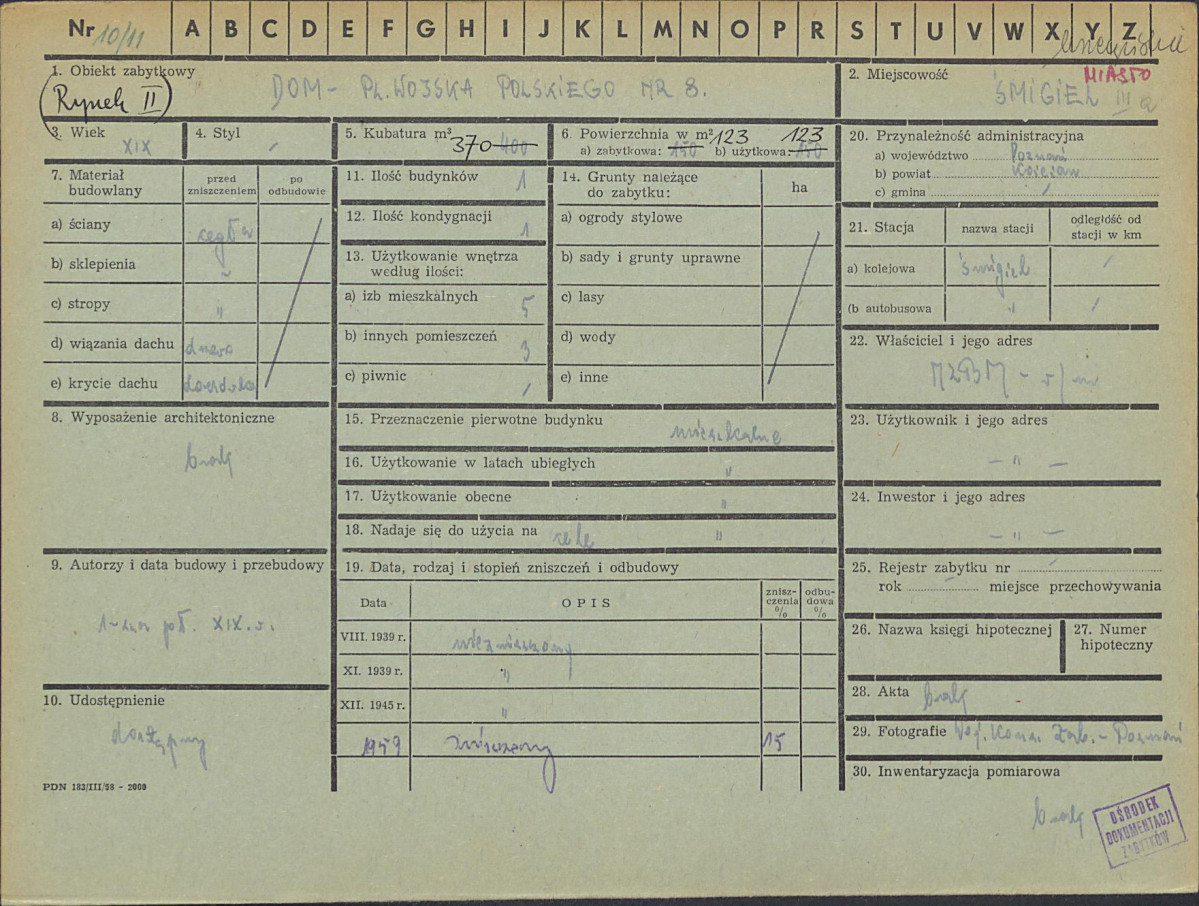 Nr 10/11 A B C D E F G H I J K L M N O P R S T U V W X Y Z
1. Obiekt zabytkowy
(Rynek II)
DOM - PL. WOJSKA POLSKIEGO NR 8.
2. Miejscowość
MIASTO
ŚMIGIEL III a
3. Wiek
XIX
4. Styl
/
5. Kubatura m³
370 400
6. Powierzchnia w m² 123 123
a) zabytkowa: 150 b) użytkowa: 150
20. Przynależność administracyjna
a) województwo Poznań
b) powiat Kościan
c) gmina /
7. Materiał budowlany
przed zniszczeniem
po odbudowie
a) ściany cegła
b) sklepienia ~
c) stropy "
d) wiązania dachu drewn
e) krycie dachu dachówka
11. Ilość budynków 1
12. Ilość kondygnacji 1
13. Użytkowanie wnętrza
według ilości:
a) izb mieszkalnych 5
b) innych pomieszczeń 3
c) piwnic /
14. Grunty należące
do zabytku:
ha
a) ogrody stylowe
b) sady i grunty uprawne
c) lasy
d) wody
e) inne
21. Stacja
nazwa stacji
odległość od
stacji w km
a) kolejowa Śmigiel /
(b autobusowa " /
22. Właściciel i jego adres
MZBM - w/m
8. Wyposażenie architektoniczne
brak
15. Przeznaczenie pierwotne budynku
mieszkalne
16. Użytkowanie w latach ubiegłych "
17. Użytkowanie obecne "
18. Nadaje się do użycia na cele "
23. Użytkownik i jego adres
— " —
24. Inwestor i jego adres
— " —
9. Autorzy i data budowy i przebudowy
1-sza poł. XIX w.
19. Data, rodzaj i stopień zniszczeń i odbudowy
Data
OPIS
znisz-
czenia
%
odbu-
dowa
%
VIII. 1939 r. niezniszczony
XI. 1939 r. "
XII. 1945 r. "
1959 zniszczony 15
25. Rejestr zabytku nr /
rok / miejsce przechowywania
26. Nazwa księgi hipotecznej
27. Numer
hipoteczny
10. Udostępnienie
dostępny
28. Akta brak
29. Fotografie Woj. Kons. Zab. - Poznań
30. Inwentaryzacja pomiarowa
brak
PDN 183/III/58 - 2000
OŚRODEK
DOKUMENTACJI
ZABYTKÓW